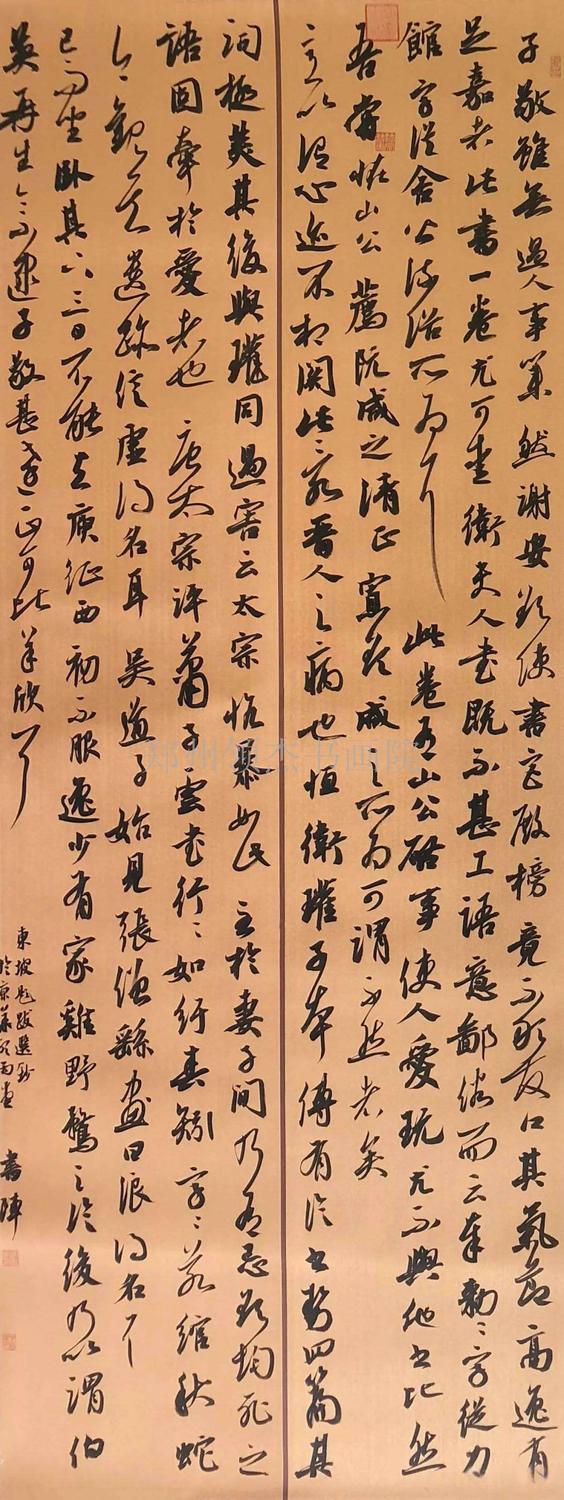 子敬雖無過人事業然謝安欲使書宮殿榜竟不敢發口其氣節高逸有
足嘉者此書一卷尤可愛衛夫人書既不甚工語意鄙俗而云奉勅〻字從力
館字從舍皆流俗所為耳 此卷有山公啓事使人愛玩尤不與他書比然
吾嘗怪山公薦阮咸之清正寡欲咸之所為可謂不然者矣
意以謂心迹不相関此最晉人之病也恒衛瓘子本傳有論書勢四篇其
詞極美其後與瓘同遇害云太宗怙暴如此至於妻子間乃有忌欲均死之
語固牽於愛者也 唐太宗評蕭子雲書行〻如紆春蚓字〻若綰秋蛇
今觀其遺跡信虛得名耳 吳道子始見張僧繇畫曰浪得名耳
已而坐臥其下三日不能去庾征西初不服逸少有家雞野鶩之論後乃以謂伯
英再生今不逮子敬甚遠正可比羊欣耳
東坡題跋選抄
於京華 書陣
郑州领杰书画院